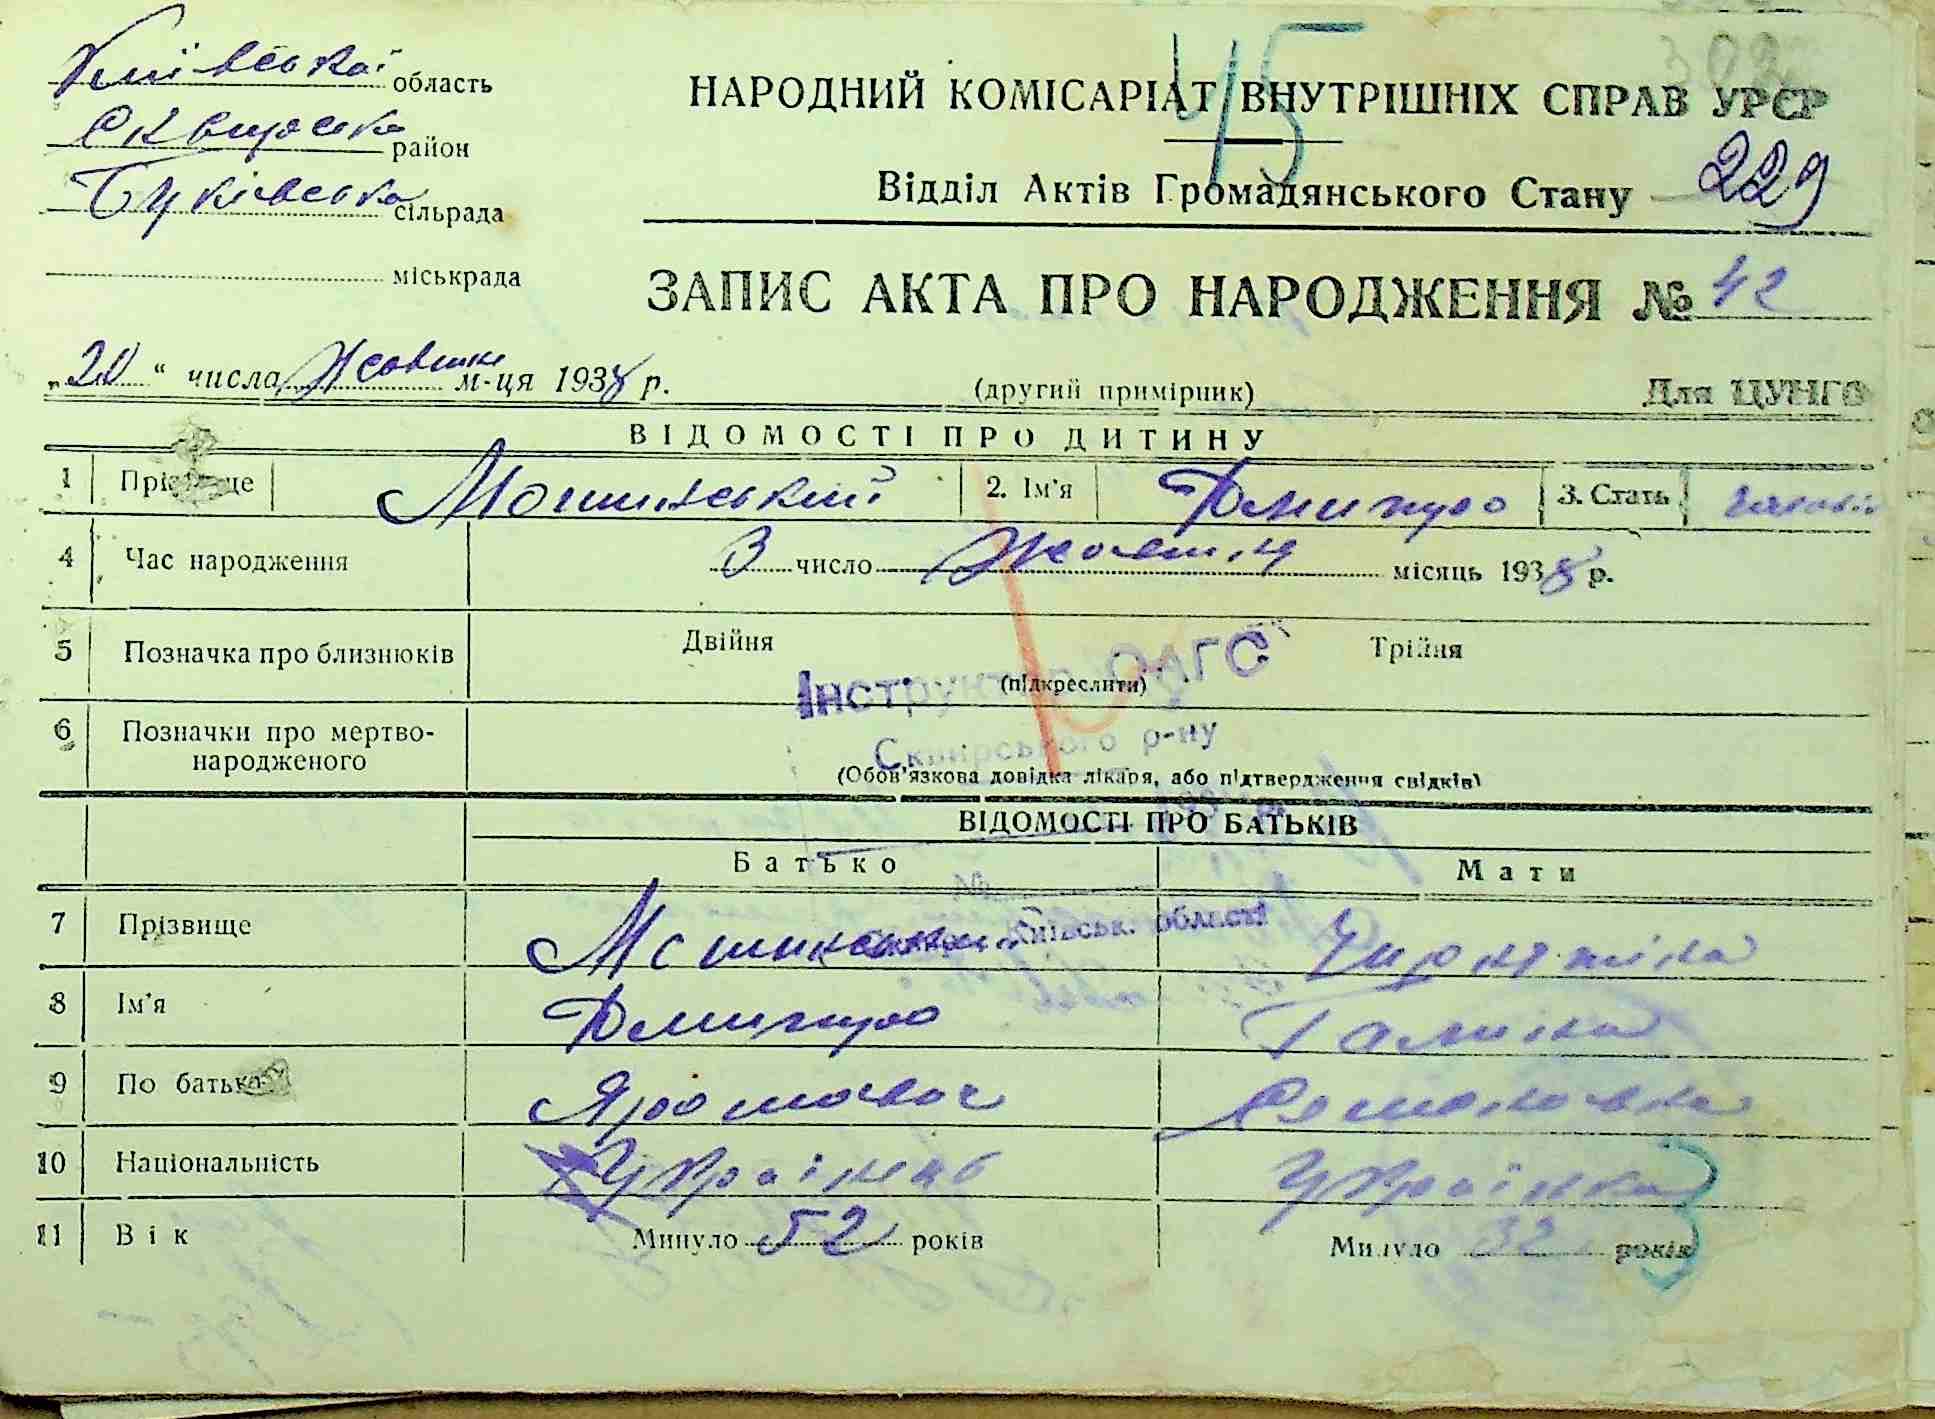 45
302
Київської область
Сквирська район
Буківська сільрада
міськрада
НАРОДНИЙ КОМІСАРІАТ ВНУТРІШНІХ СПРАВ УРСР
Відділ Актів Громадянського Стану
229
ЗАПИС АКТА ПРО НАРОДЖЕННЯ № 42
„20“ числа Жовтня м-ця 1938 р.
(другий примірник)
Для ЦУНГО
ВІДОМОСТІ ПРО ДИТИНУ
1 Прізвище Мошинський 2. Ім'я Дмитро 3. Стать
4 Час народження 3 число Жовтня місяць 1938 р.
5 Позначка про близнюків Двійня Трійня
(підкреслити)
Інструктор ОАГС
Сквирського р-ну
6 Позначки про мертво-
народженого
(Обов'язкова довідка лікаря, або підтвердження свідків)
ВІДОМОСТІ ПРО БАТЬКІВ
Батько Мати
Київськ. області
7 Прізвище
8 Ім'я Дмитро Галина
9 По батькові
10 Національність Українець Українка
11 Вік Минуло 52 років Минуло 32 років